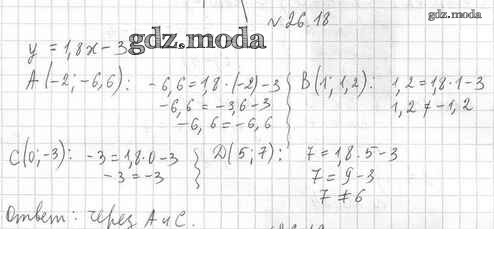 № 26.18
gdz.moda
y = 1,8x - 3
gdz.moda
A(-2; -6,6): -6,6 = 1,8 · (-2) - 3
-6,6 = -3,6 - 3
-6,6 = -6,6
B(1; 1,2): 1,2 = 1,8 · 1 - 3
1,2 ≠ -1,2
C(0; -3): -3 = 1,8 · 0 - 3
-3 = -3
D(5; 7): 7 = 1,8 · 5 - 3
7 = 9 - 3
7 ≠ 6
Ответ: через A и C.